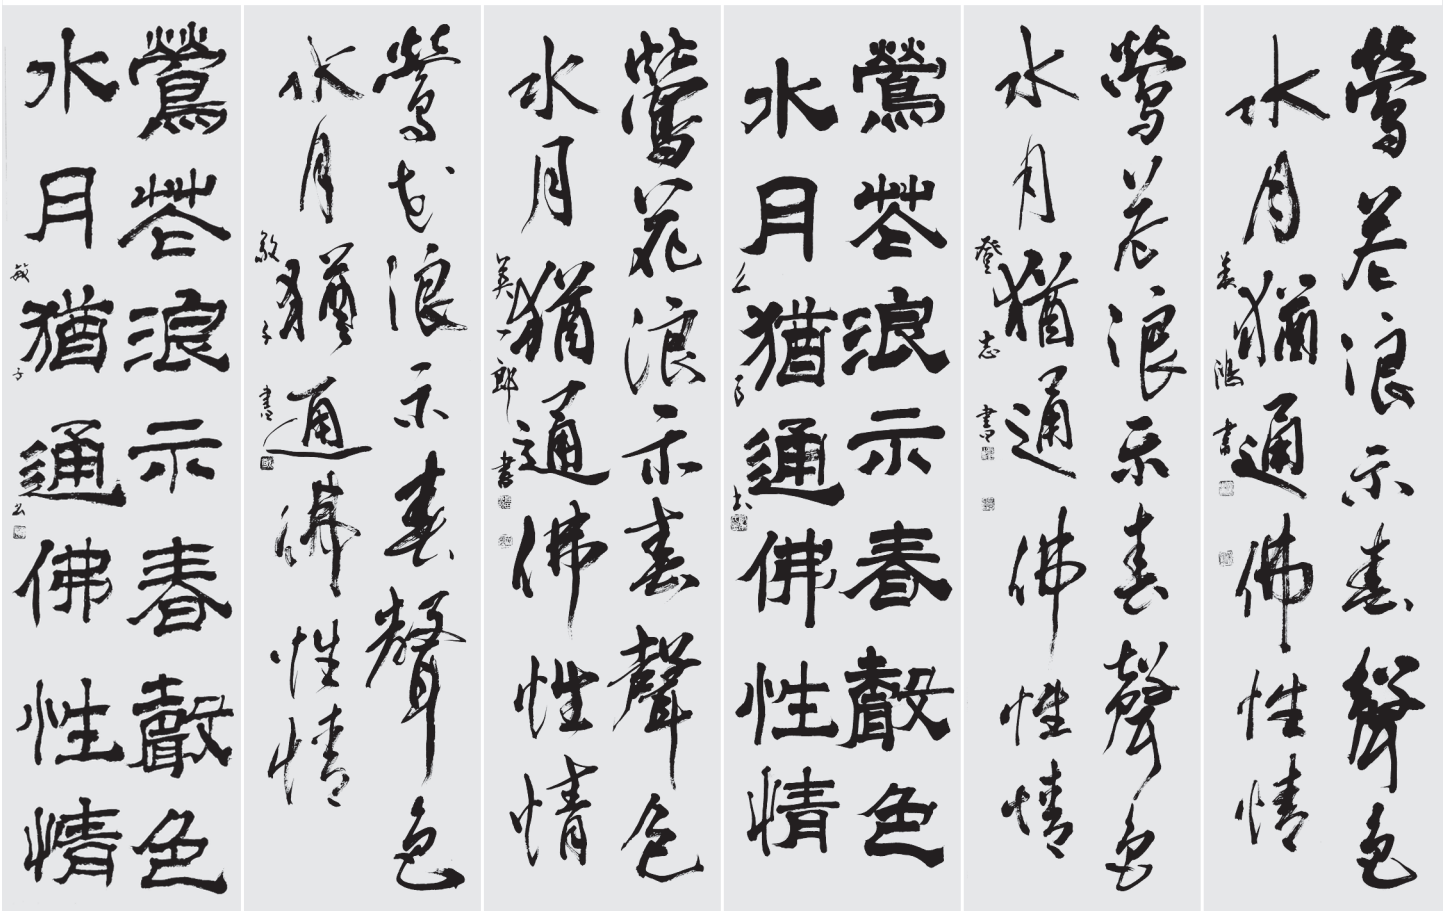 鶯花浪示春聲色
水月猶通佛性情
義鴻書
鶯花浪示春聲色
水月猶通佛性情
登志書
鶯花浪示春聲色
水月猶通佛性情
鶯花浪示春聲色
水月猶通佛性情
英一郎書
鶯花浪示春聲色
水月猶通佛性情
敏子書
鶯花浪示春聲色
水月猶通佛性情
敏子書